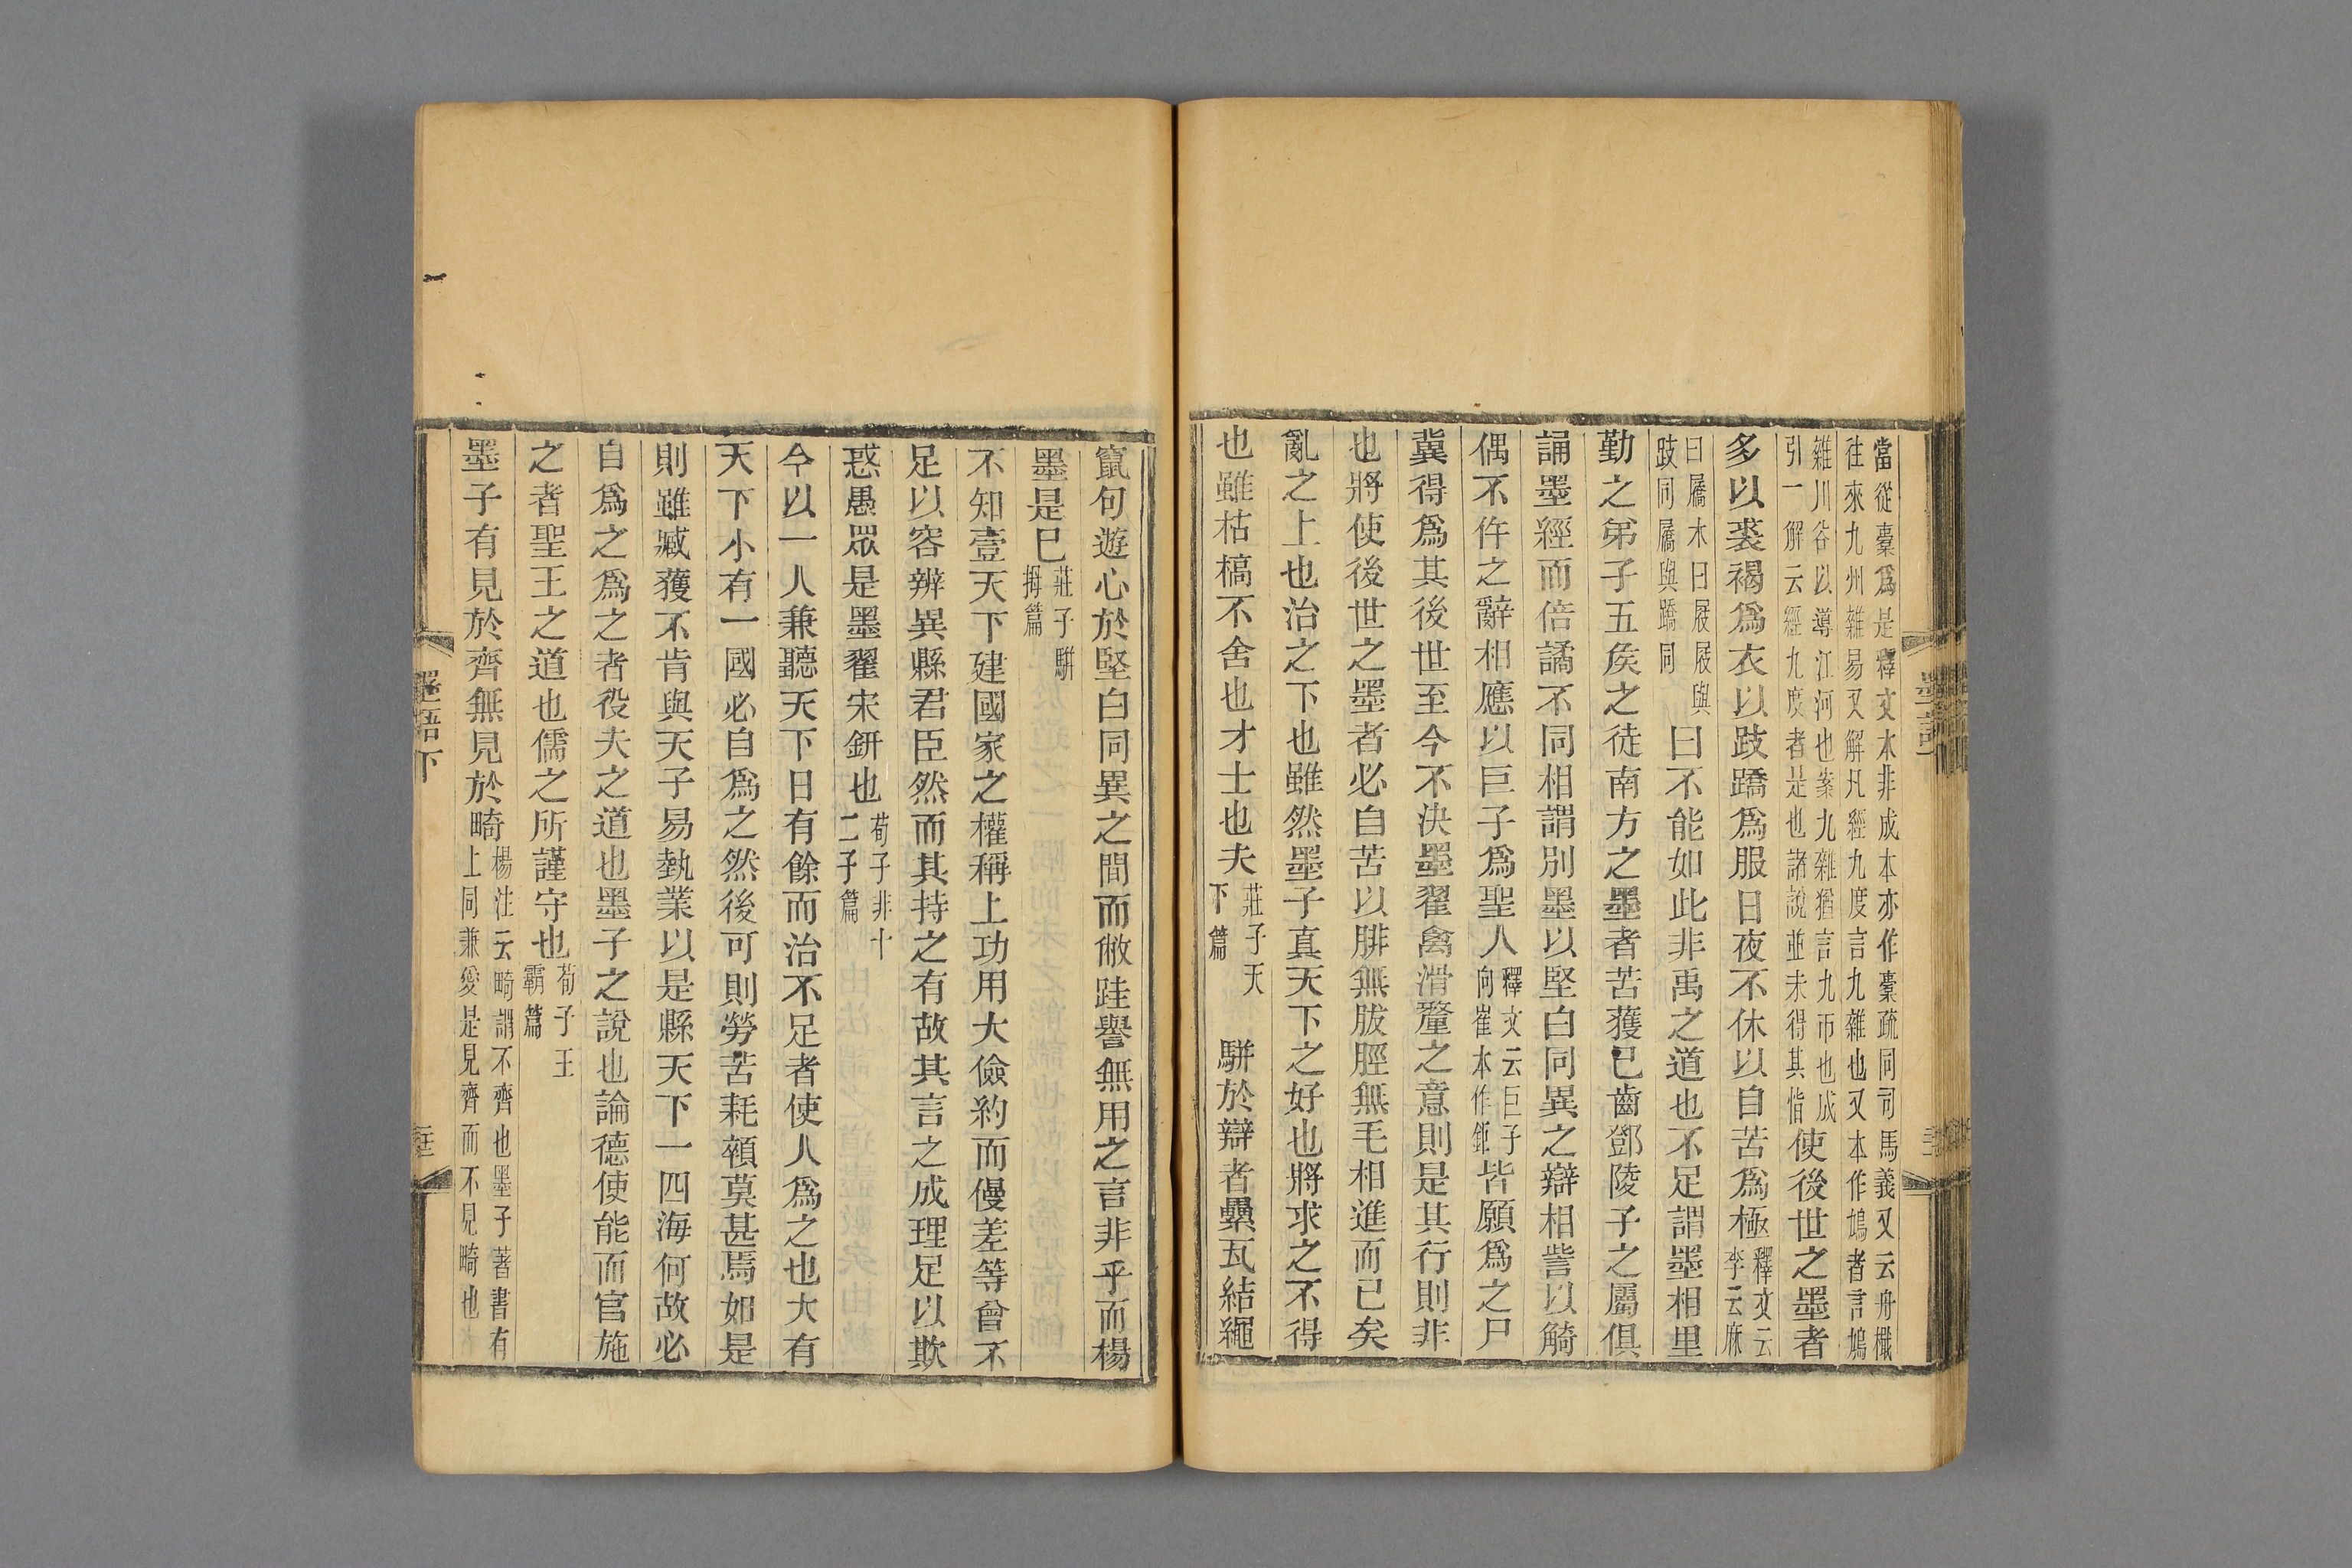 當從橐爲是釋文本非成本亦作橐疏同司馬義又云舟檝
往來九州雜易又解凡經九度言九雜也又本作鳩者言鳩
雜川谷以導江河也案九雜猶言九帀也成
引一解云經九度者是也諸說並未得其恉使後世之墨者
多以裘褐爲衣以跂蹻爲服日夜不休以自苦爲極釋文云
李云麻
曰屩木曰屐屐與
跂同屩與蹻同曰不能如此非禹之道也不足謂墨相里
勤之弟子五矦之徒南方之墨者苦獲已齒鄧陵子之屬俱
誦墨經而倍譎不同相謂別墨以堅白同異之辯相訾以觭
偶不仵之辭相應以巨子爲聖人釋文云巨子
向崔本作鉅皆願爲之尸
冀得爲其後世至今不決墨翟禽滑釐之意則是其行則非
也將使後世之墨者必自苦以腓無胈脛無毛相進而已矣
亂之上也治之下也雖然墨子真天下之好也將求之不得
也雖枯槁不舍也才士也夫莊子天
下篇 駢於辯者纍瓦結繩
竄句遊心於堅白同異之間而敝跬譽無用之言非乎而楊
墨是已莊子駢
拇篇
不知壹天下建國家之權稱上功用大儉約而僈差等曾不
足以容辨異縣君臣然而其持之有故其言之成理足以欺
惑愚眾是墨翟宋鈃也荀子非十
二子篇
今以一人兼聽天下日有餘而治不足者使人爲之也大有
天下小有一國必自爲之然後可則勞苦耗顇莫甚焉如是
則雖臧獲不肯與天子易埶業以是縣天下一四海何故必
自爲之爲之者役夫之道也墨子之說也論德使能而官施
之者聖王之道也儒之所謹守也荀子王
霸篇
墨子有見於齊無見於畸楊注云畸謂不齊也墨子著書有
上同兼愛是見齊而不見畸也
墨語下